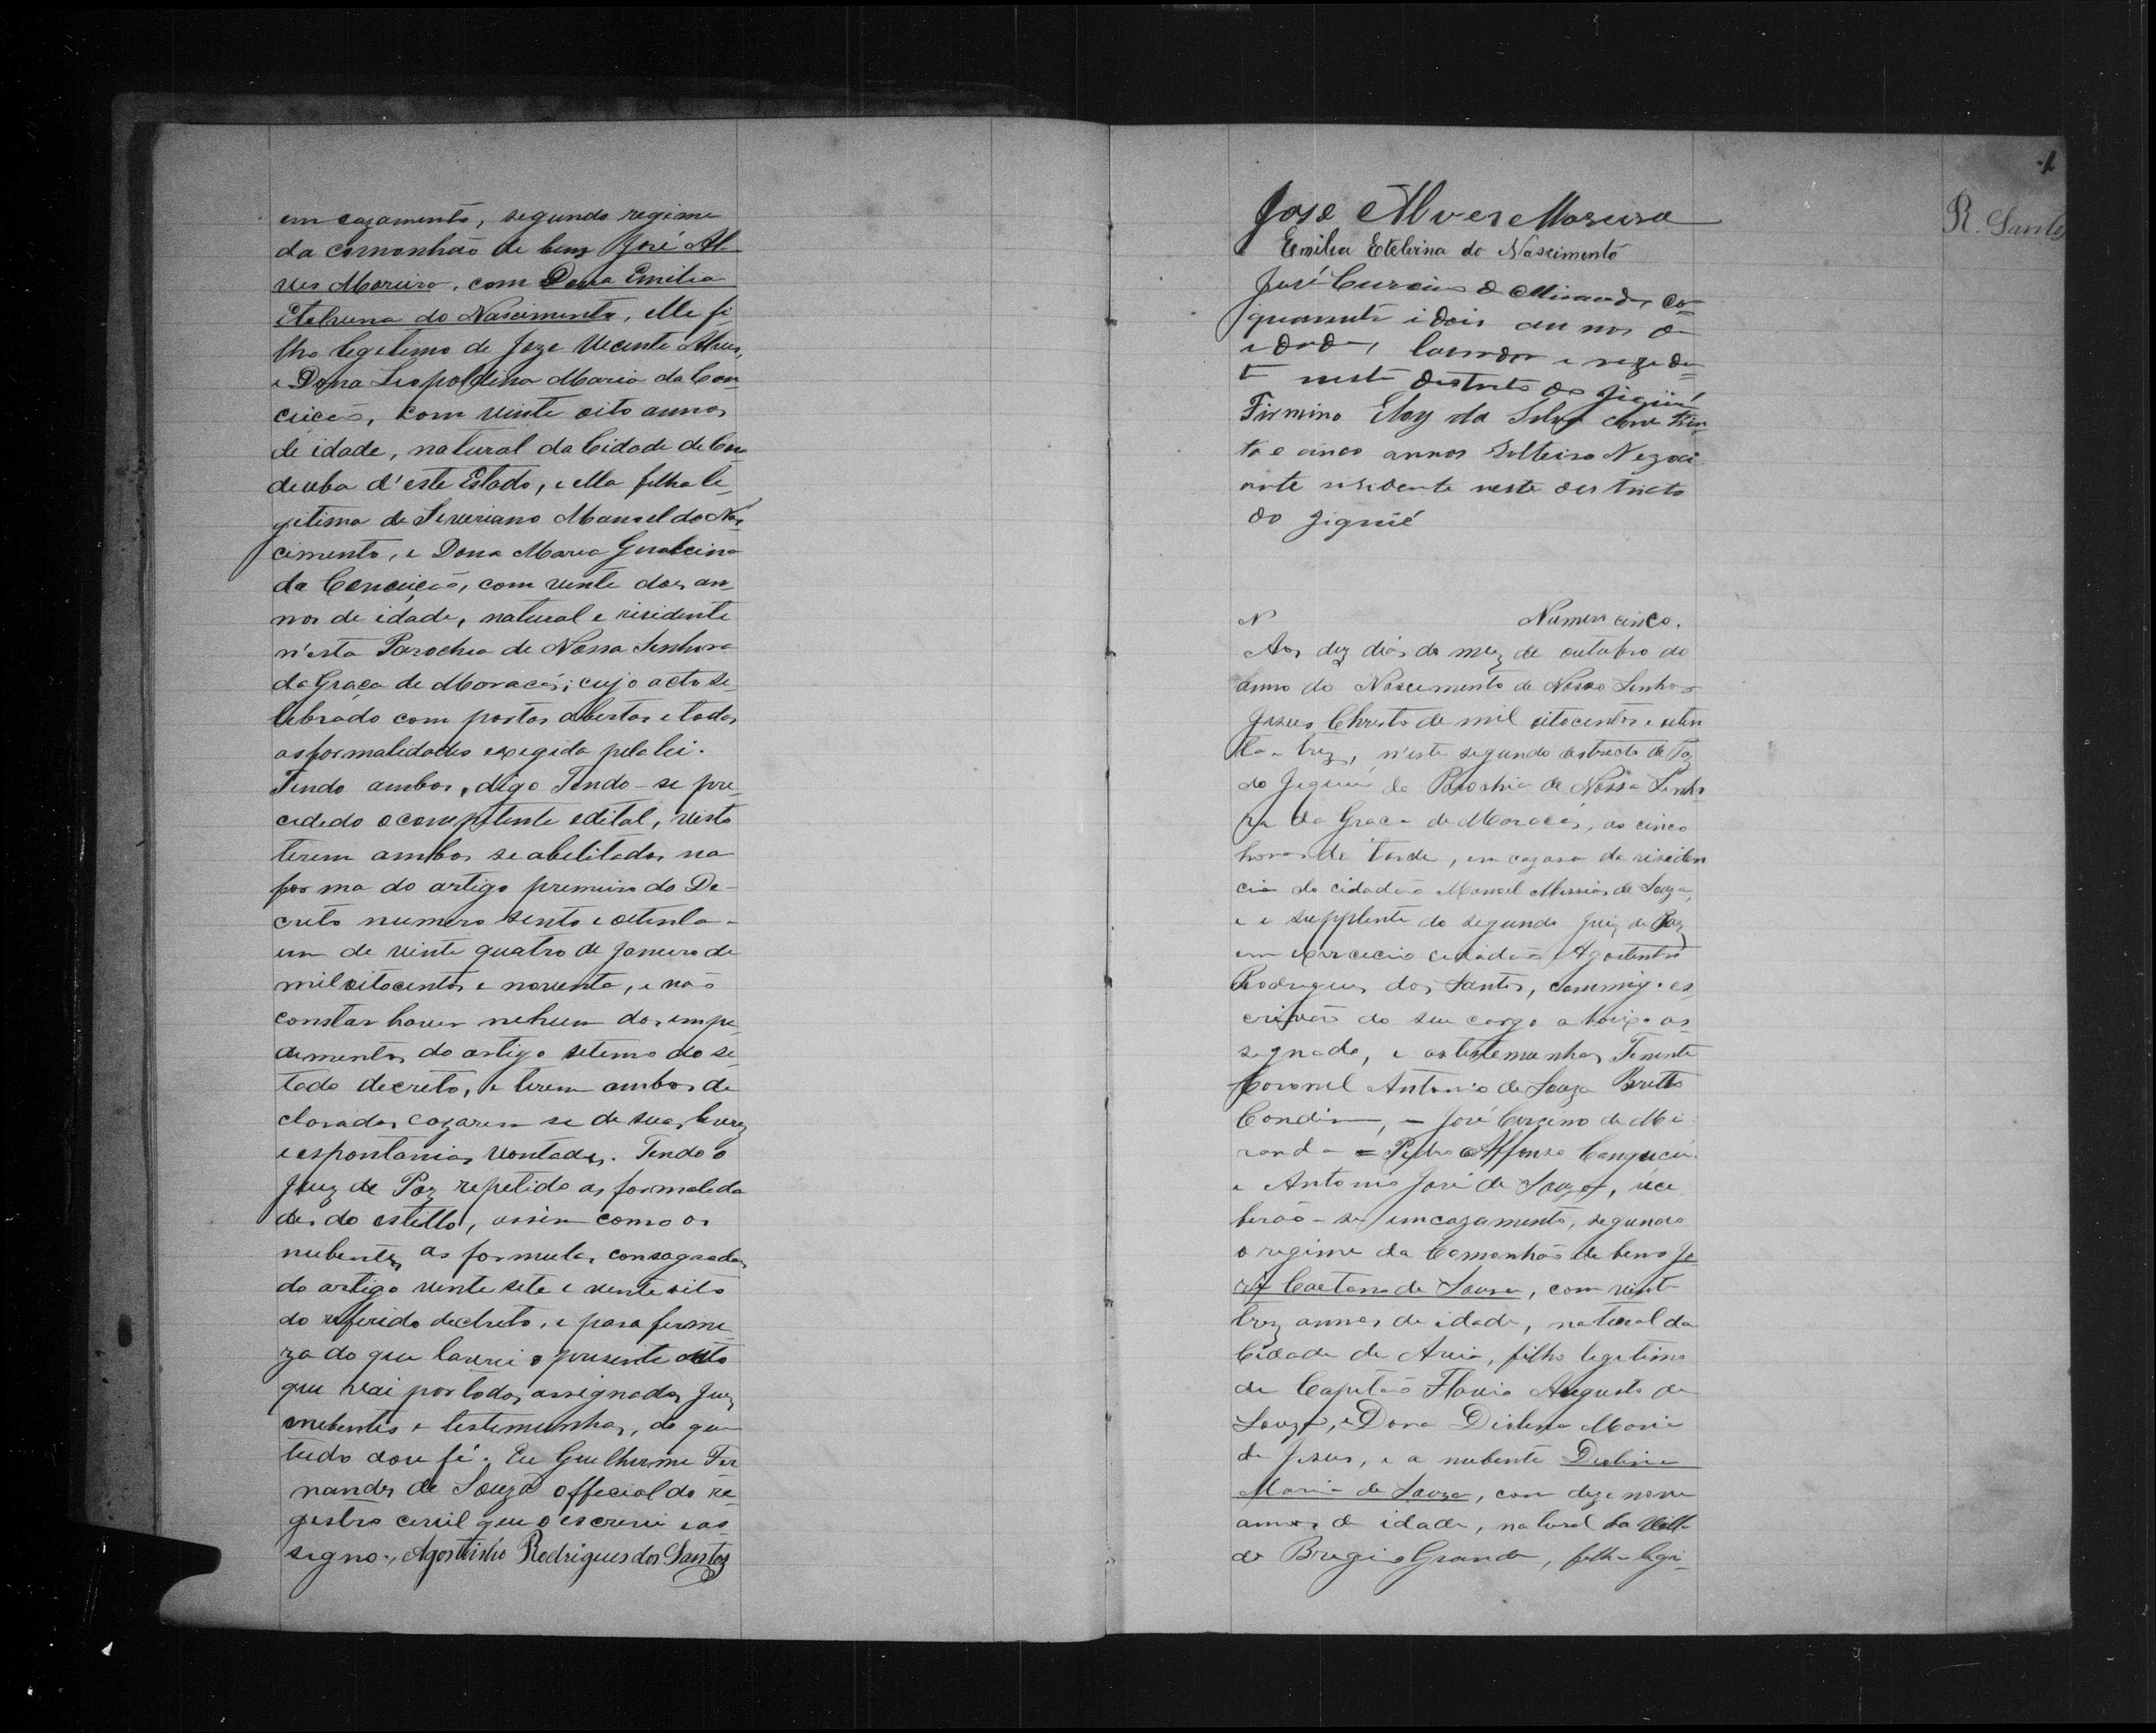 em cazamento, segundo regime
da comonhão de bens José Al-
ves Moreira, com Dona Emilia
Etelvina do Nascimento, elle fi-
lho legitimo de Joze Vicente Alves,
e Dona Leopoldina Maria da Con-
ceicão, com vinte oito annos
de idade, natural da Cidade de
deuba d'este Estado, e ella filha le-
gitima de Severiano Manoel do Nas-
cimento, e Dona Maria Gualcina
da Conceição, com vente dois an-
nos de idade, natural e residente
n'esta Parochia de Nossa Senhora
da Graça de Maracás; cujo acto se-
lebrado com portas abertas e todas
as formalidades exegida pela lei.
Tendo ambos, digo Tendo-se pre-
cedido o competente edital, visto
terem ambos se abelitados na
forma do artigo premeiro do De-
creto numero sento e oitenta-
um de vinte quatro de Janeiro de
mil oitocentos e noventa, e não
constar haver nehum dos empe-
dementos do artigo setemo do se-
tado decreto, e terem ambos de
clarados cazarem se de suas livres
e espontanias vontades. Tendo o
Juiz de Paz repetido as formaleda
des do estillo, assim como os
nubentes as formulas consagradas
do artigo vente sete e vente oito
do referido dechreto, e para firme-
za do que lavrei o presente auto
que vai por todos assignados Juiz
nubentes e testemunhas, do que
tudo dou fé. Eu Guelherme Fer
nandes de Souza official do re-
gestro cevil que o escrevi e as-
signo., Agostinho Rodrigues dos Santos
R. Santos
Jose Alves Moreira
Emilia Etelvina do Nascimento
José Curcino de Miranda, co
quarenta i dois annos de
idade, lavrador e rezeden-
te neste destrito do Jiquié
Firmino Eloy da Silva com trin-
ta e cinco annos Solteiro Negoci
ante residente neste destricto
do Jiquié
N Numero cinco.
Aos dez dias do mez de outubro do
anno do Nascimento de Nosso Senhor
Jesus Christo de mil oitocentos e
ta e trez, n'este segundo destricto de Paz
do Jiquié da Parochia de Nossa Senho
ra da Graça de Maracás, as cinco
horas da tarde, em cazara da residen
cia do cidadão Manoel Messias de Souza,
e o supplente do segundo Juiz de Paz
em exercicio cidadão Agostinho
Rodrigues dos Santos, commigo es
crivão do seu cargo abaixo as
segnado, e as testemunhas Tenente
Coronel Antonio de Souza Britto
Condim, - José Corcino de Mi
randa = Pedro Affonso Canguçú.
e Antonio José de Souza, rece
berão-se em cazamento, segundo
o regime da Comonhão de bens Jo
sé Caetano de Souza, com vint
trez annos de idade, natural da
Cidade de Areia, filho legitimo
de Capitão Flavio Augusto de
Souza, e Dona Diolina Maria
de Jesus, e a nubente Deolina
Maria de Souza, com deze nove
annos de idade, natural da Villa
do Brejo Grande, filha legi-